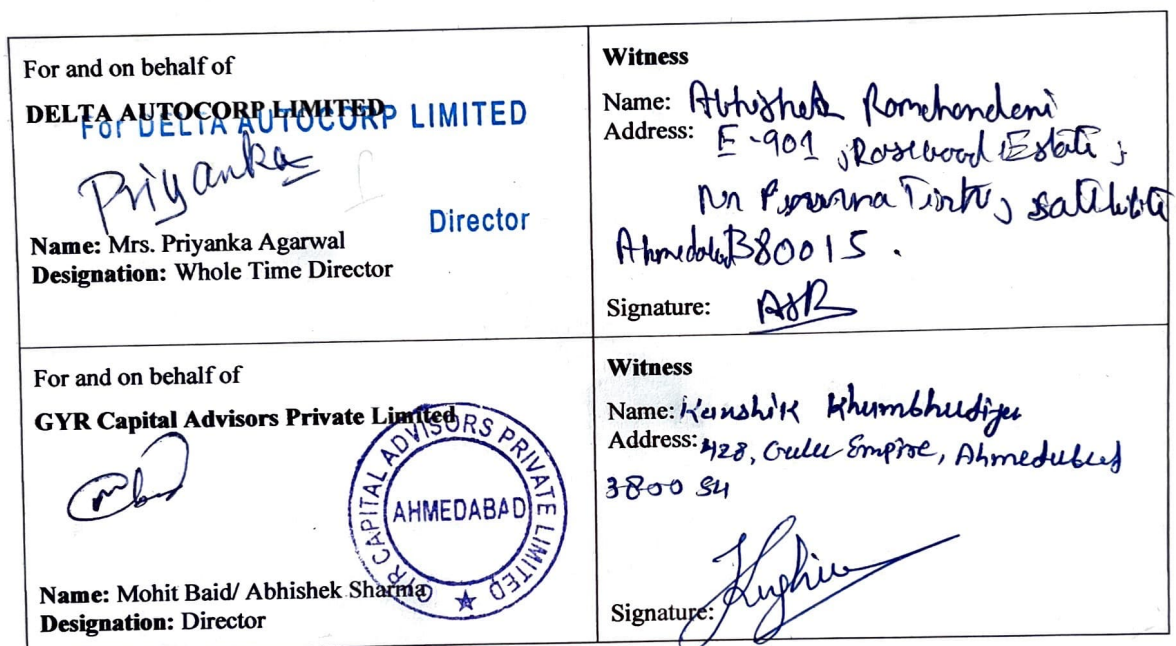 For and on behalf of
DELTA AUTOCORP LIMITED
For DELTA AUTOCORP LIMITED
Priyanka
Director
Name: Mrs. Priyanka Agarwal
Designation: Whole Time Director
Witness
Name: Abhishek Ramchandani
Address: E-901, Rosewood Estate,
Ahmedabad 380015.
Signature:
For and on behalf of
GYR Capital Advisors Private Limited
GYR CAPITAL ADVISORS PRIVATE LIMITED
AHMEDABAD
Name: Mohit Baid/ Abhishek Sharma
Designation: Director
Witness
Name: Kaushik Khumbhudiya
Address: 428, Empire, Ahmedabad
380054
Signature: